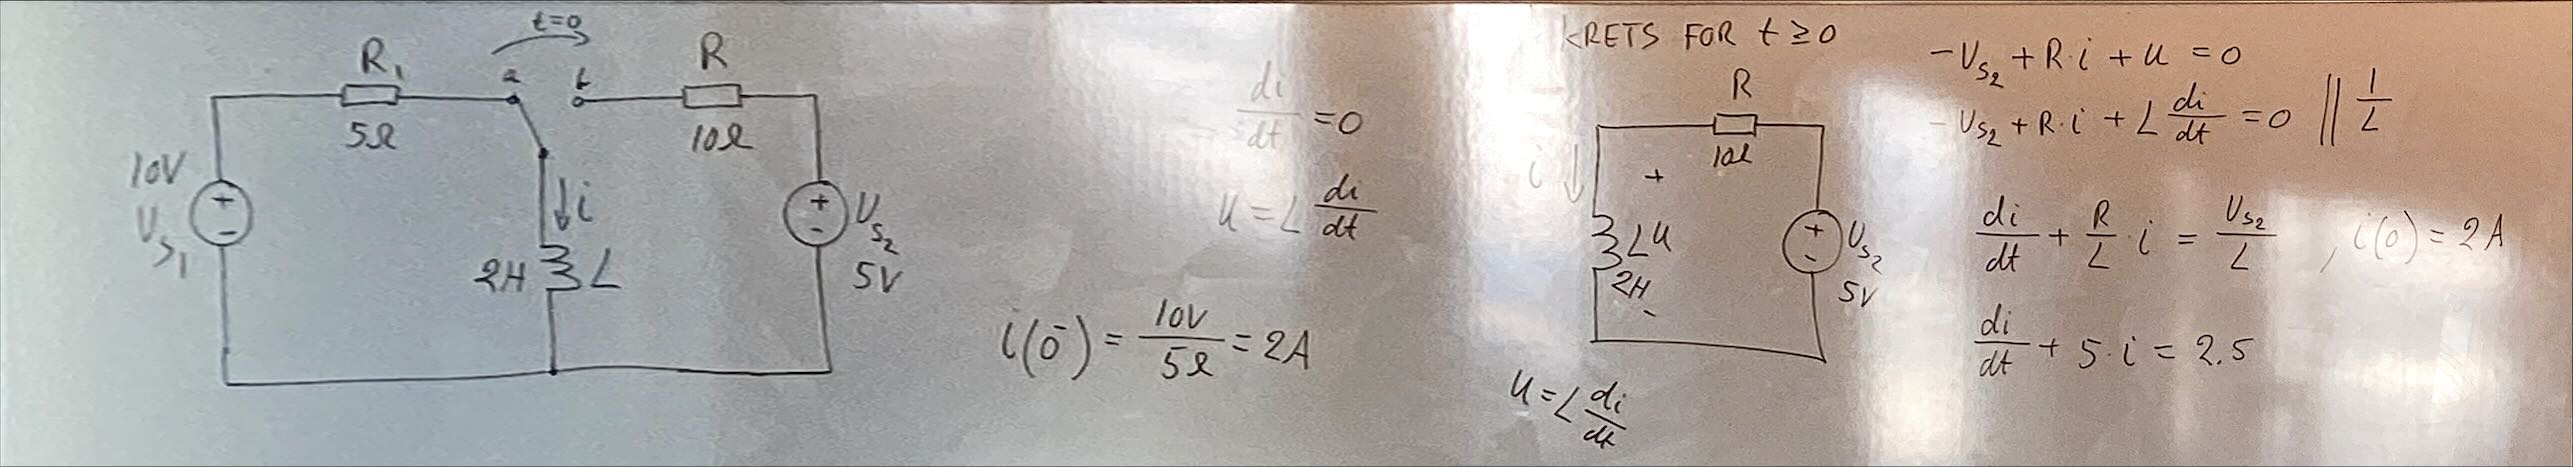 t=0
a b
R₁ R
5Ω 10Ω
10V
U_S₁
+
-
i
2H L
+
-
U_S₂
5V
di/dt = 0
u = L di/dt
i(0⁻) = 10V/5Ω = 2A
KRETS FOR t ≥ 0
R
10Ω
i
+
L u
2H
-
+
-
U_S₂
5V
u = L di/dt
-U_S₂ + R·i + u = 0
-U_S₂ + R·i + L di/dt = 0 || 1/L
di/dt + R/L · i = U_S₂/L , i(0) = 2A
di/dt + 5·i = 2.5